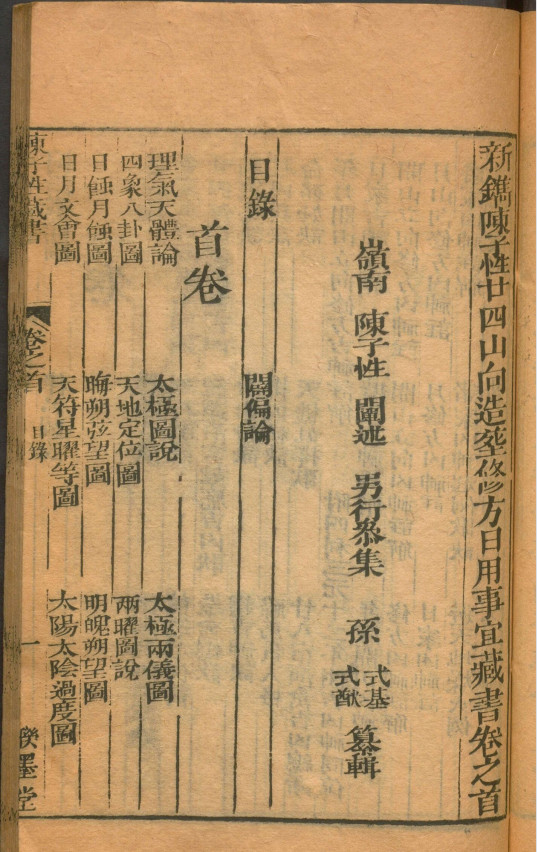 新鐫陳子性廿四山向造塟修方日用事宜藏書卷之首
嶺南 陳子性 闡述 男行叅集 孫 式基 式猷 纂輯
目錄 闢偏論
首卷
理氣天體論 太極圖說 太極兩儀圖
四象八卦圖 天地定位圖 兩曜圖說
日蝕月蝕圖 晦朔弦望圖 明魄朔望圖
日月交會圖 天符星曜等圖 太陽太陰過度圖
陳子性藏書 卷之首 目錄 一 墨堂